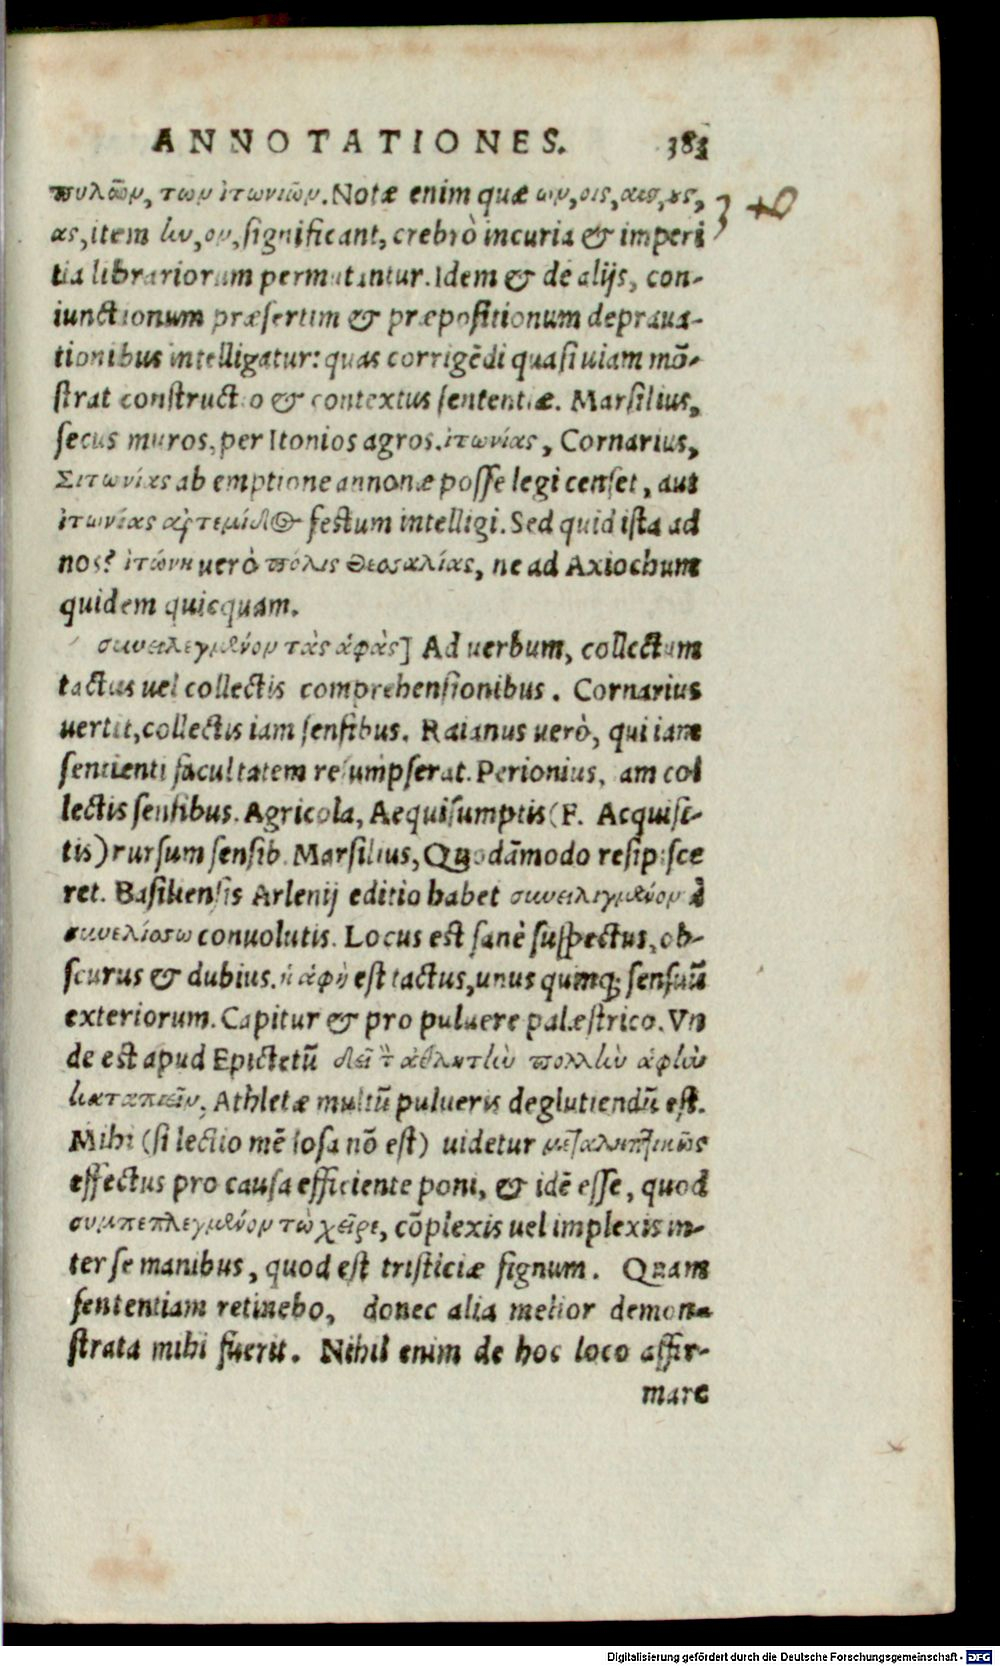 ANNOTATIONES. 383
πυλῶν, των ἰτωνιῶν. Notæ enim quæ ων, οις, αις, ȣς,
ας, item ην, ον, significant, crebrò incuria & imperi
tia librariorum permutantur. Idem & de alijs, con-
iunctionum præsertim & præpositionum deprava-
tionibus intelligatur: quas corrigẽdi quasi uiam mõ-
strat constructio & contextus sententiæ. Marsilius,
secus muros, per Itonios agros. ἰτωνίας, Cornarius,
Σιτωνίας ab emptione annonæ posse legi censet, aut
ἰτωνίας αρτεμίδος festum intelligi. Sed quid ista ad
nos? ἰτώνη uerò πόλις θεσσαλίας, ne ad Axiochum
quidem quicquam.
συνειλεγμένον τὰς ἁφὰς] Ad uerbum, collectum
tactus uel collectis comprehensionibus. Cornarius
uertit, collectis iam sensibus. Raianus uerò, qui iam
sentienti facultatem resumpserat. Perionius, iam col
lectis sensibus. Agricola, Aequisumptis (F. Acquisi-
tis) rursum sensib. Marsilius, Quodãmodo resipisce
ret. Basiliensis Arlenij editio habet συνειλιγμένον à
συνελίσσω conuolutis. Locus est sanè suspectus, ob-
scurus & dubius. ἡ ἁφὴ est tactus, unus quinq; sensuũ
exteriorum. Capitur & pro puluere palæstrico. Vn
de est apud Epictetũ δεῖ τ̀ ἀθλητὴν πολλὴν ἁφὴν
καταπιεῖν, Athletæ multũ pulueris deglutiendũ est.
Mihi (si lectio mẽdosa nõ est) uidetur μεταληπτικῶς
effectus pro causa efficiente poni, & idẽ esse, quod
συμπεπλεγμένον τὼ χεῖρε, cõplexis uel implexis in-
ter se manibus, quod est tristiciæ signum. Quam
sententiam retinebo, donec alia melior demon-
strata mihi fuerit. Nihil enim de hoc loco affir-
mare
Digitalisierung gefördert durch die Deutsche Forschungsgemeinschaft - DFG